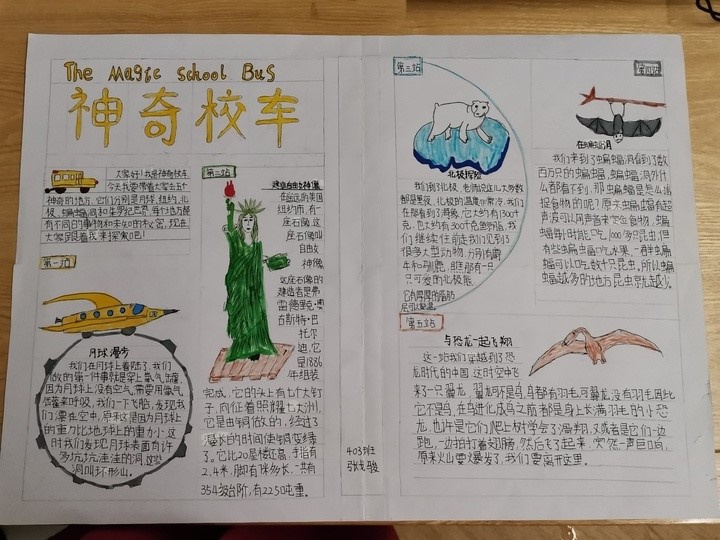 The Magic School Bus
神奇校车
大家好!我是神奇校车,
今天我要带着大家去五个
神奇的地方,它们分别是月球,纽约,北
极,蝙蝠洞和侏罗纪世界,每个地方都
有不同的事物和未知的秘密,现在
大家跟着我来探索吧!
第一站
月球漫步
我们在月球上着陆了,我们
做的第一件事就是穿上氧气
因为月球上没有空气,需要用氧气
来呼吸,我们一下飞船,发现我
们漂在空中,原来这是因为月球上
的重力比地球上的重力小,这
时我们发现月球表面有许
多坑坑洼洼的洞,这些
洞叫环形山。
第二站
在遥远的美国
纽约市,有一
座石像,这
座石像叫
自由
神像,
这座石像的
建造者是弗
雷德里克·奥
古斯特·巴
托尔
迪,它
是1886
年组装
完成,它的头上有七个大钉
子,向征着照耀七大洲,
它是由铜做的,经过了
漫长的时间使铜变绿
了。它比20层楼还高,手指有
2.4米,脚有很多长,一共有
354级台阶,有2250吨重。
403班
第三站
北极探险
我们到了北极,老师说这儿大多数
都是黑夜,北极的温度非常冷,我们
在那看到了海象,它大约有1300千
克,也大约有300千克的脂肪,我
们继续往前走我们见到了
很多大型动物,分别有麝
牛和驯鹿,瞧那有一只
只可爱的北极熊,
它有厚厚的脂肪
可以保温
第四站
在蝙蝠洞
我们来到了蝙蝠洞看到了数
百万只的蝙蝠,蝙蝠洞外什
么都看不到,那蝙蝠是怎么捕
捉食物的呢?原来蝙蝠靠着超
声波可以用声音来定位食物,蝙
蝠每小时能吃1000多只昆虫,但
有些蝙蝠吃水果,一群蝙
蝠可以吃数计只昆虫。所以蝙
蝠越多的地方昆虫就越少。
第五站
与恐龙一起飞翔
这一站我们穿越到了恐
龙时代的中国,这时空中飞
来了一只翼龙,翼龙不是鸟,鸟都有羽毛,可翼龙没有羽毛,因此
它不是鸟,在鸟进化成鸟之前都是身上长满羽毛的小恐
龙,也许是它们爬上树学会了滑翔,又或者是它们一边
跑,一边拍打着翅膀,然后飞了起来,突然一声巨响,
原来火山要爆发了,我们要离开这里。